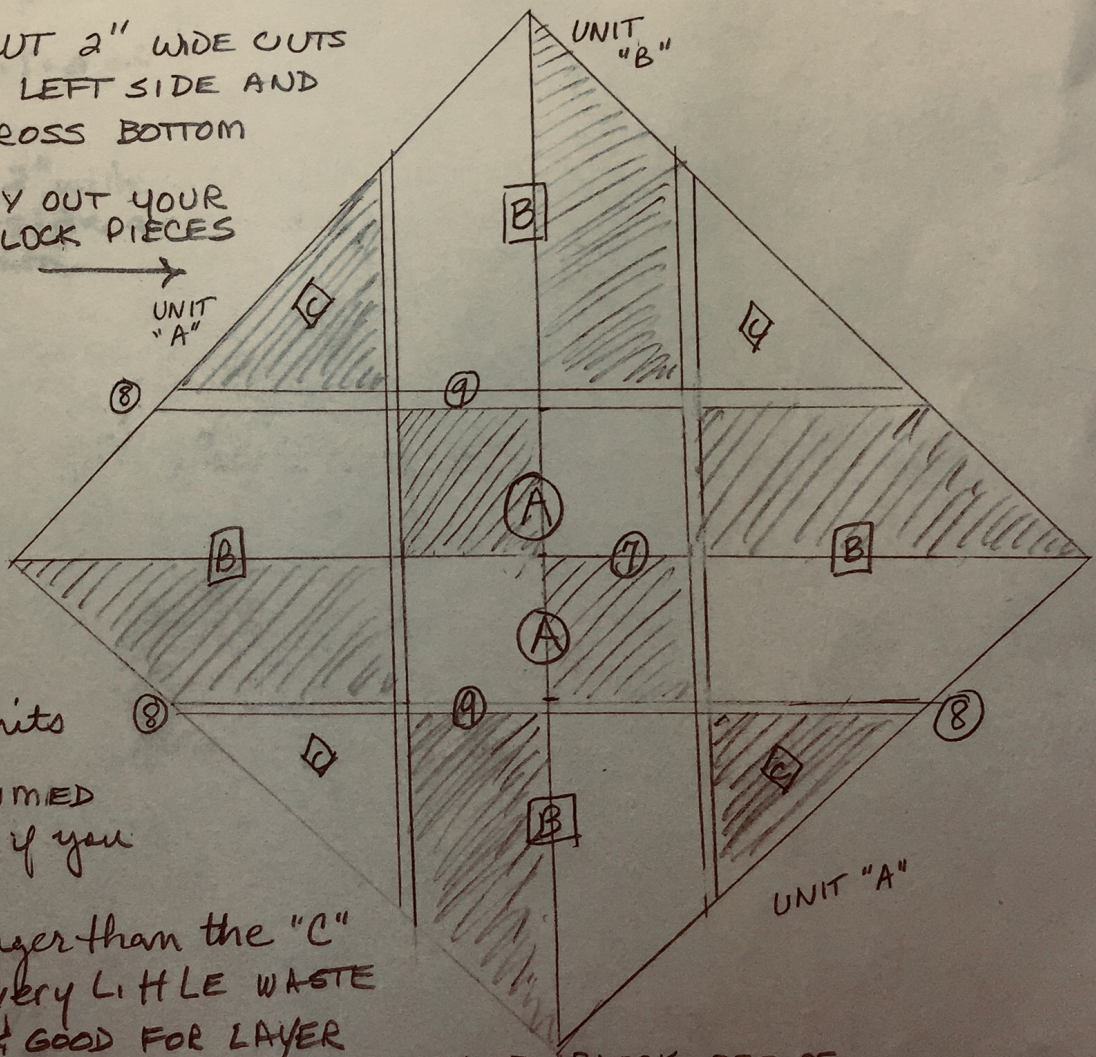 UT 2" WIDE CUTS
LEFT SIDE AND
ROSS BOTTOM
Y OUT YOUR
LOCK PIECES
UNIT
"A"
UNIT
"B"
B
C
C
8
9
A
B
7
B
A
8
9
8
C
C
B
UNIT "A"
nits
UMED
if you
ger than the "C"
very LITTLE WASTE
GOOD FOR LAYER